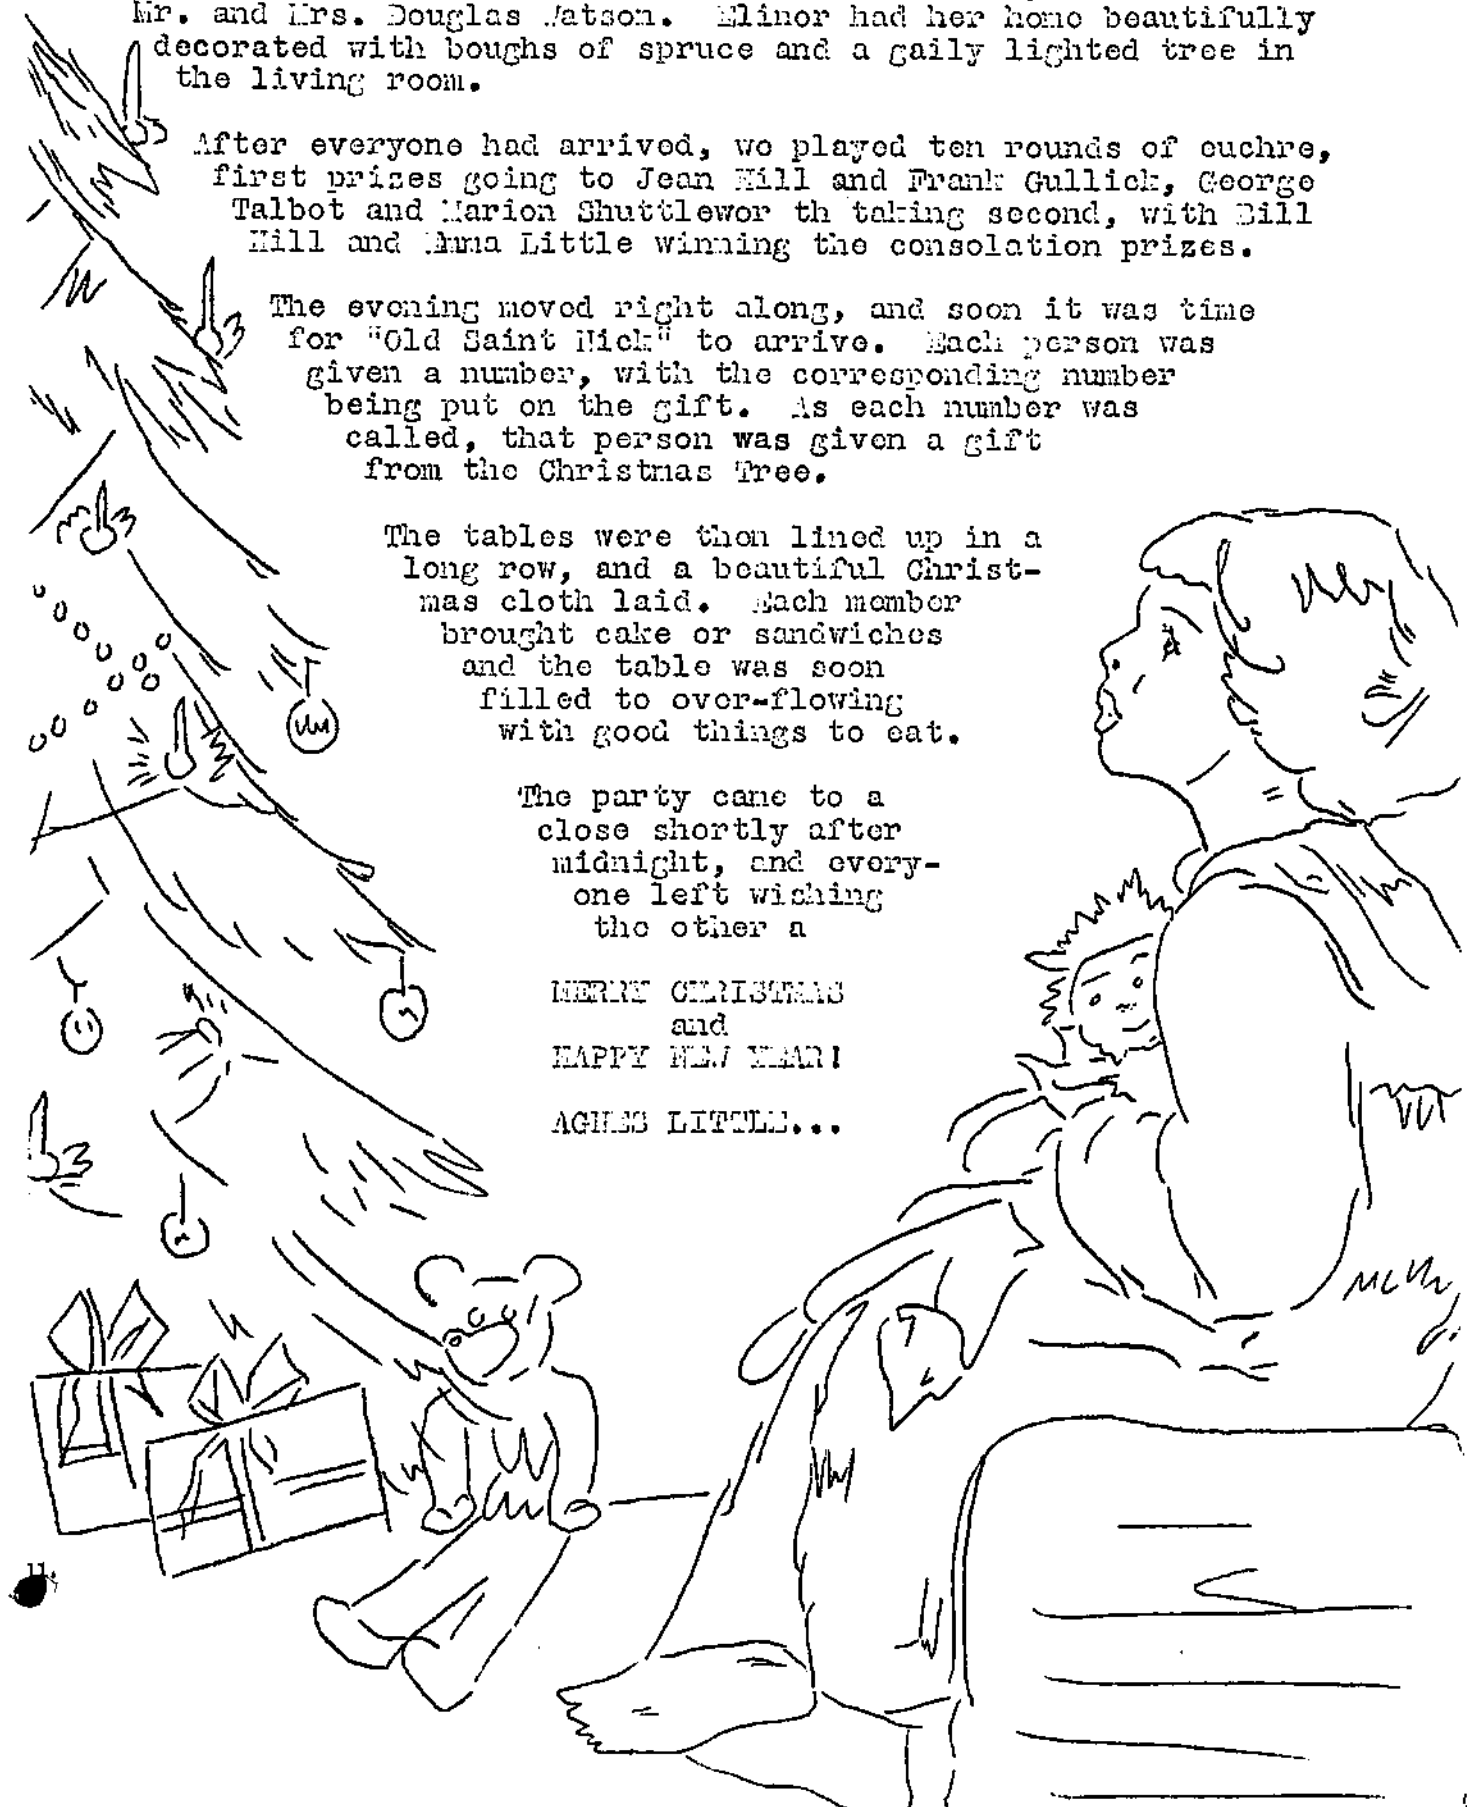 Mr. and Mrs. Douglas Watson.  Elinor had her home beautifully
decorated with boughs of spruce and a gaily lighted tree in
the living room.
After everyone had arrived, we played ten rounds of euchre,
first prizes going to Jean Hill and Frank Gullick, George
Talbot and Marion Shuttlewor th taking second, with Bill
Hill and Emma Little winning the consolation prizes.
The evening moved right along, and soon it was time
for "Old Saint Nick" to arrive.  Each person was
given a number, with the corresponding number
being put on the gift.  As each number was
called, that person was given a gift
from the Christmas Tree.
The tables were then lined up in a
long row, and a beautiful Christ-
mas cloth laid.  Each member
brought cake or sandwiches
and the table was soon
filled to over-flowing
with good things to eat.
The party came to a
close shortly after
midnight, and every-
one left wishing
the other a
MERRY CHRISTMAS
and
HAPPY NEW YEAR!
AGNES LITTLE...